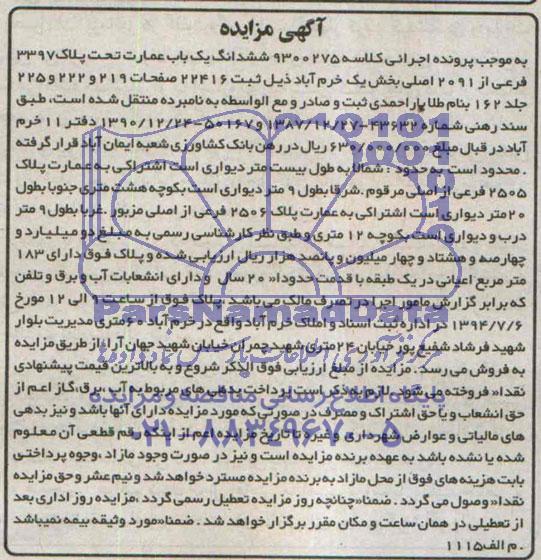 آگهی مزایده
به موجب پرونده اجرائی کلاسه ۹۳۰۰۲۷۵ ششدانگ یک باب عمارت تحت پلاک ۳۳۹۷
فرعی از ۲۰۹۱ اصلی بخش یک خرم آباد ذیل ثبت ۲۲۴۱۶ صفحات ۲۱۹ و ۲۲۲ و ۲۲۵
جلد ۱۶۲ بنام طلا یاراحمدی ثبت و صادر و مع الواسطه به نامبرده منتقل شده است، طبق
سند رهنی شماره ۴۳۶۳۲-۱۳۸۷/۱۲/۲۷ و ۵۰۱۶۷-۱۳۹۰/۱۲/۲۴ دفتر ۱۱ خرم
آباد در قبال مبلغ ۶۳۰/۰۰۰/۰۰۰ ریال در رهن بانک کشاورزی شعبه ایمان آباد قرار گرفته
. محدود است به حدود : شمالاً به طول بیست متر دیواری است اشتراکی به عمارت پلاک
۲۵۰۵ فرعی از اصلی مرقوم .شرقاً بطول ۹ متر دیواری است بکوچه هشت متری جنوباً بطول
۲۰متر دیواری است اشتراکی به عمارت پلاک ۲۵۰۶ فرعی از اصلی مزبور .غرباً بطول ۹ متر
درب و دیواری است بکوچه ۱۲ متری و طبق نظر کارشناسی رسمی به مبلغ دو میلیارد و
چهارصد و هشتاد و چهار میلیون و پانصد هزار ریال ارزیابی شده و پلاک فوق دارای ۱۸۳
متر مربع اعیانی در یک طبقه با قدمت حدودا« ۲۰ سال و دارای انشعابات آب و برق و تلفن
که برابر گزارش مامور اجرا در تصرف مالک می باشد . پلاک فوق از ساعت ۹ الی ۱۲ مورخ
۱۳۹۴/۷/۶ در اداره ثبت اسناد و املاک خرم آباد واقع در خرم آباد ۶۰متری مدیریت بلوار
شهید فرشاد شفیع پور خیابان ۲۴متری شهید چمران خیابان شهید جهان آرا، از طریق مزایده
به فروش می رسد . مزایده از مبلغ ارزیابی فوق الذکر شروع و به بالاترین قیمت پیشنهادی
نقدا« فروخته می شود. لازم بذکر است پرداخت بدهی های مربوط به آب ،برق،گاز اعم از
حق انشعاب و یا حق اشتراک و مصرف در صورتی که مورد مزایده دارای آنها باشد و نیز بدهی
های مالیاتی و عوارض شهرداری و غیره تا تاریخ مزایده اعم از اینکه رقم قطعی آن معلوم
شده یا نشده باشد به عهده برنده مزایده است و نیز در صورت وجود مازاد ،وجوه پرداختی
بابت هزینه های فوق از محل مازاد به برنده مزایده مسترد خواهد شد و نیم عشر و حق مزایده
نقدا« وصول می گردد . ضمنا«چنانچه روز مزایده تعطیل رسمی گردد ،مزایده روز اداری بعد
از تعطیلی در همان ساعت و مکان مقرر برگزار خواهد شد . ضمنا«مورد وثیقه بیمه نمیباشد
. م الف۱۱۱۵
ParsNamadData
پایگاه اطلاع رسانی مناقصه و مزایده
۰۲۱-۸۸۳۴۹۶۷۰-۵